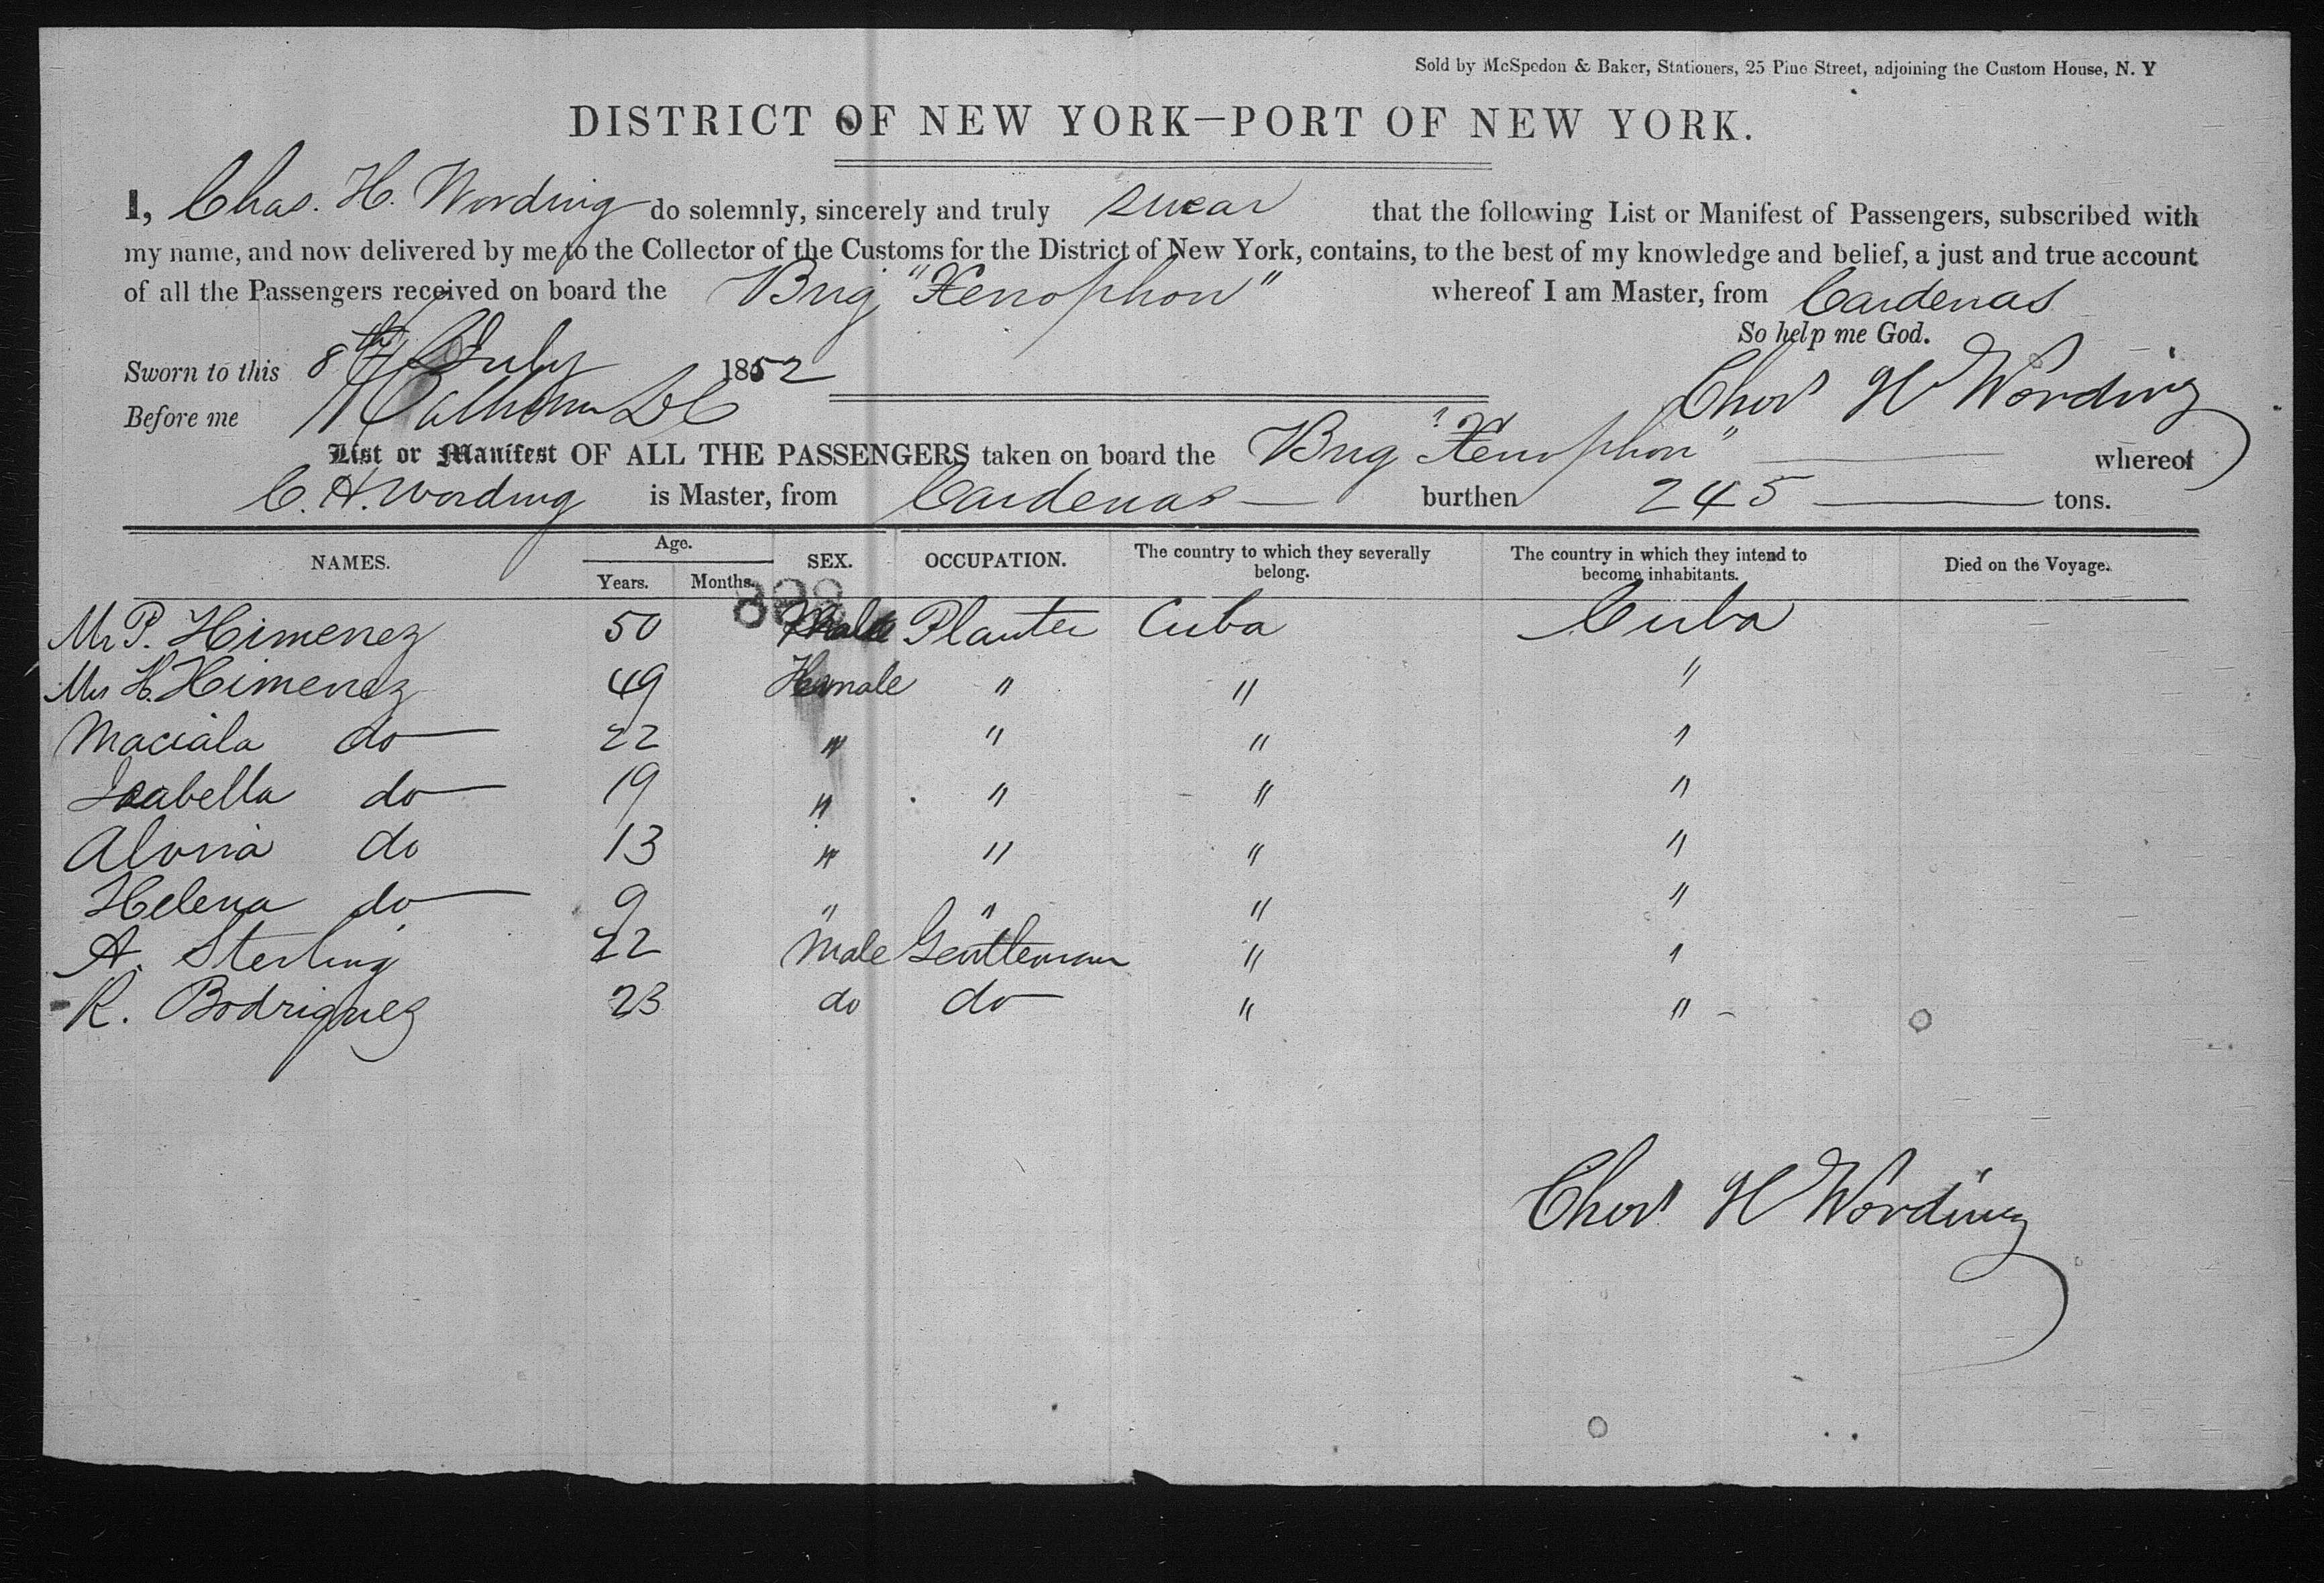 Sold by McSpedon & Baker, Stationers, 25 Pine Street, adjoining the Custom House, N. Y
DISTRICT OF NEW YORK—PORT OF NEW YORK.
I, Chas. H. Wording do solemnly, sincerely and truly swear that the following List or Manifest of Passengers, subscribed with
my name, and now delivered by me to the Collector of the Customs for the District of New York, contains, to the best of my knowledge and belief, a just and true account
of all the Passengers received on board the Brig "Xenophon" whereof I am Master, from Cardenas
So help me God.
Sworn to this 8th July 1852
Chas H Wording
Before me
List or Manifest OF ALL THE PASSENGERS taken on board the Brig "Xenophon" whereof
C. H. Wording is Master, from Cardenas burthen 245 tons.
NAMES. Age. Years. Months. SEX. OCCUPATION. The country to which they severally belong. The country in which they intend to become inhabitants. Died on the Voyage.
898
Mr P. Himenez 50 Male Planter Cuba Cuba
Mrs H. Himenez 49 Female " " "
Maciala do 22 " " " "
Isabella do 19 " " " "
Alvina do 13 " " " "
Helena do 9 " " " "
A. Sterling 22 Male Gentleman " "
R. Bodriguez 23 do do " "
Chas H Wording